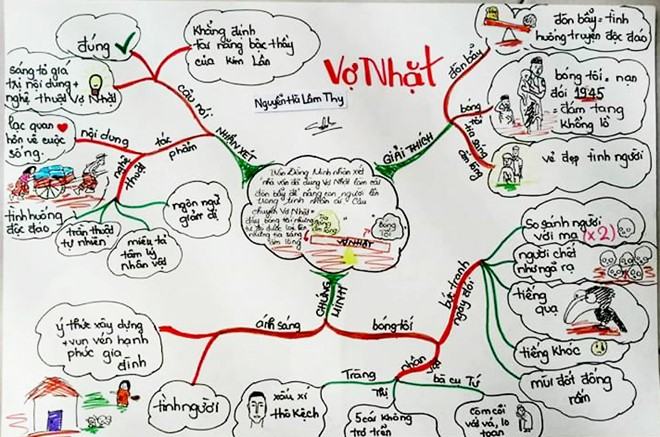 Vợ Nhặt
Nguyễn Hà Lâm Thy
NHẬN XÉT
câu nói
đúng
khẳng định
tài năng bậc thầy
của Kim Lân
sáng tỏ giá
trị nội dung +
nghệ thuật Vợ Nhặt
tác
phẩm
nội dung
lạc quan
hơn về cuộc
sống.
nghệ
thuật
tình huống
độc đáo
trần thuật
tự nhiên
miêu tả
tâm lý
nhân vật
ngôn ngữ
giản dị
GIẢI THÍCH
đòn bẩy
đòn bẩy = tình
huống truyện độc đáo
bóng
tối
bóng tối = nạn
đói 1945
= đám tang
khổng lồ
tia sáng
ấm lòng
vẻ đẹp tình người
Trần Đăng Minh nhận xét
nhà văn đã dùng Vợ Nhặt làm cái
đòn bẩy để nâng con người lên
trong tình nhân ái. Câu
chuyện Vợ Nhặt
đầy bóng tối nhưng
từ đó
những tia sáng
ấm lòng
bóng
tối
VỢ NHẶT
CHỨNG
MINH
ánh sáng
ý thức xây dựng
+ vun vén hạnh
phúc gia
đình
tình người
bóng tối
bức tranh
ngày đói
So sánh người
với ma (x2)
người chết
như ngả rạ
tiếng
quạ
tiếng khóc
mùi đốt đống
rấm
nhân
vật
Tràng
xấu xí
thô kệch
Thị
5 cái không
trơ trẽn
bà cụ Tứ
Còm cõi
vất vả, lo
toan